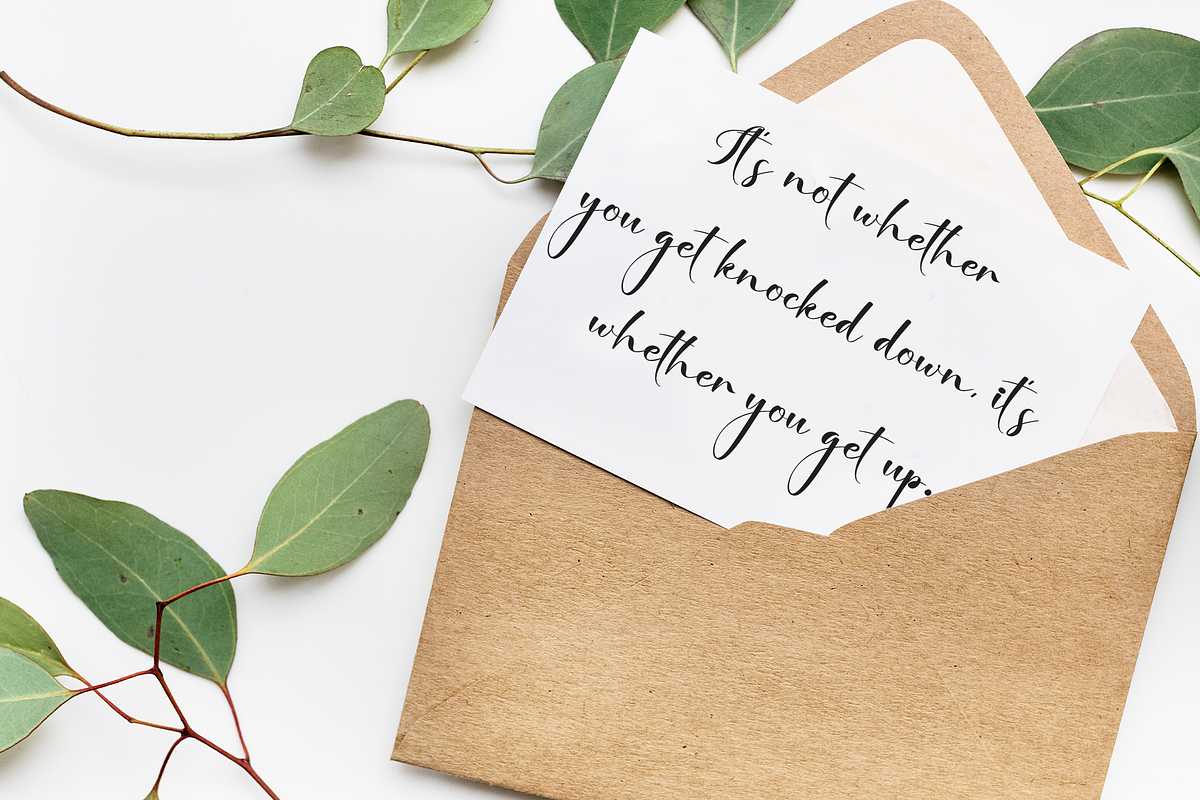 It's not whether
you get knocked down, it's
whether you get up.